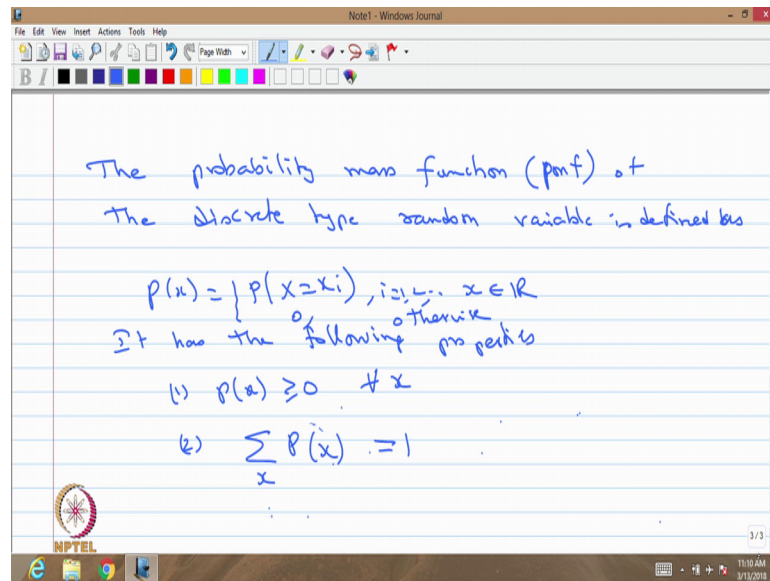 Note1 - Windows Journal
File Edit View Insert Actions Tools Help
Page Width
B I
The probability mass function (pmf) of
the discrete type random variable is defined as
p(x) = { P(X = xi), i=1,2,... x ∈ IR
0, otherwise
It has the following properties
(1) p(x) ≥ 0 ∀ x
(2) Σ P(x) = 1
x
NPTEL
3/3
11:10 AM
3/13/2018